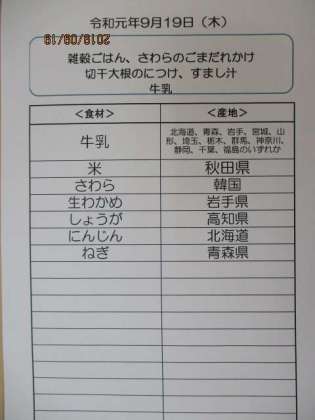 令和元年9月19日（木）
2019/09/19
雑穀ごはん、さわらのごまだれかけ
切干大根のにつけ、すまし汁
牛乳
＜食材＞ ＜産地＞
牛乳 北海道、青森、岩手、宮城、山
形、埼玉、栃木、群馬、神奈川、
静岡、千葉、福島のいずれか
米 秋田県
さわら 韓国
生わかめ 岩手県
しょうが 高知県
にんじん 北海道
ねぎ 青森県